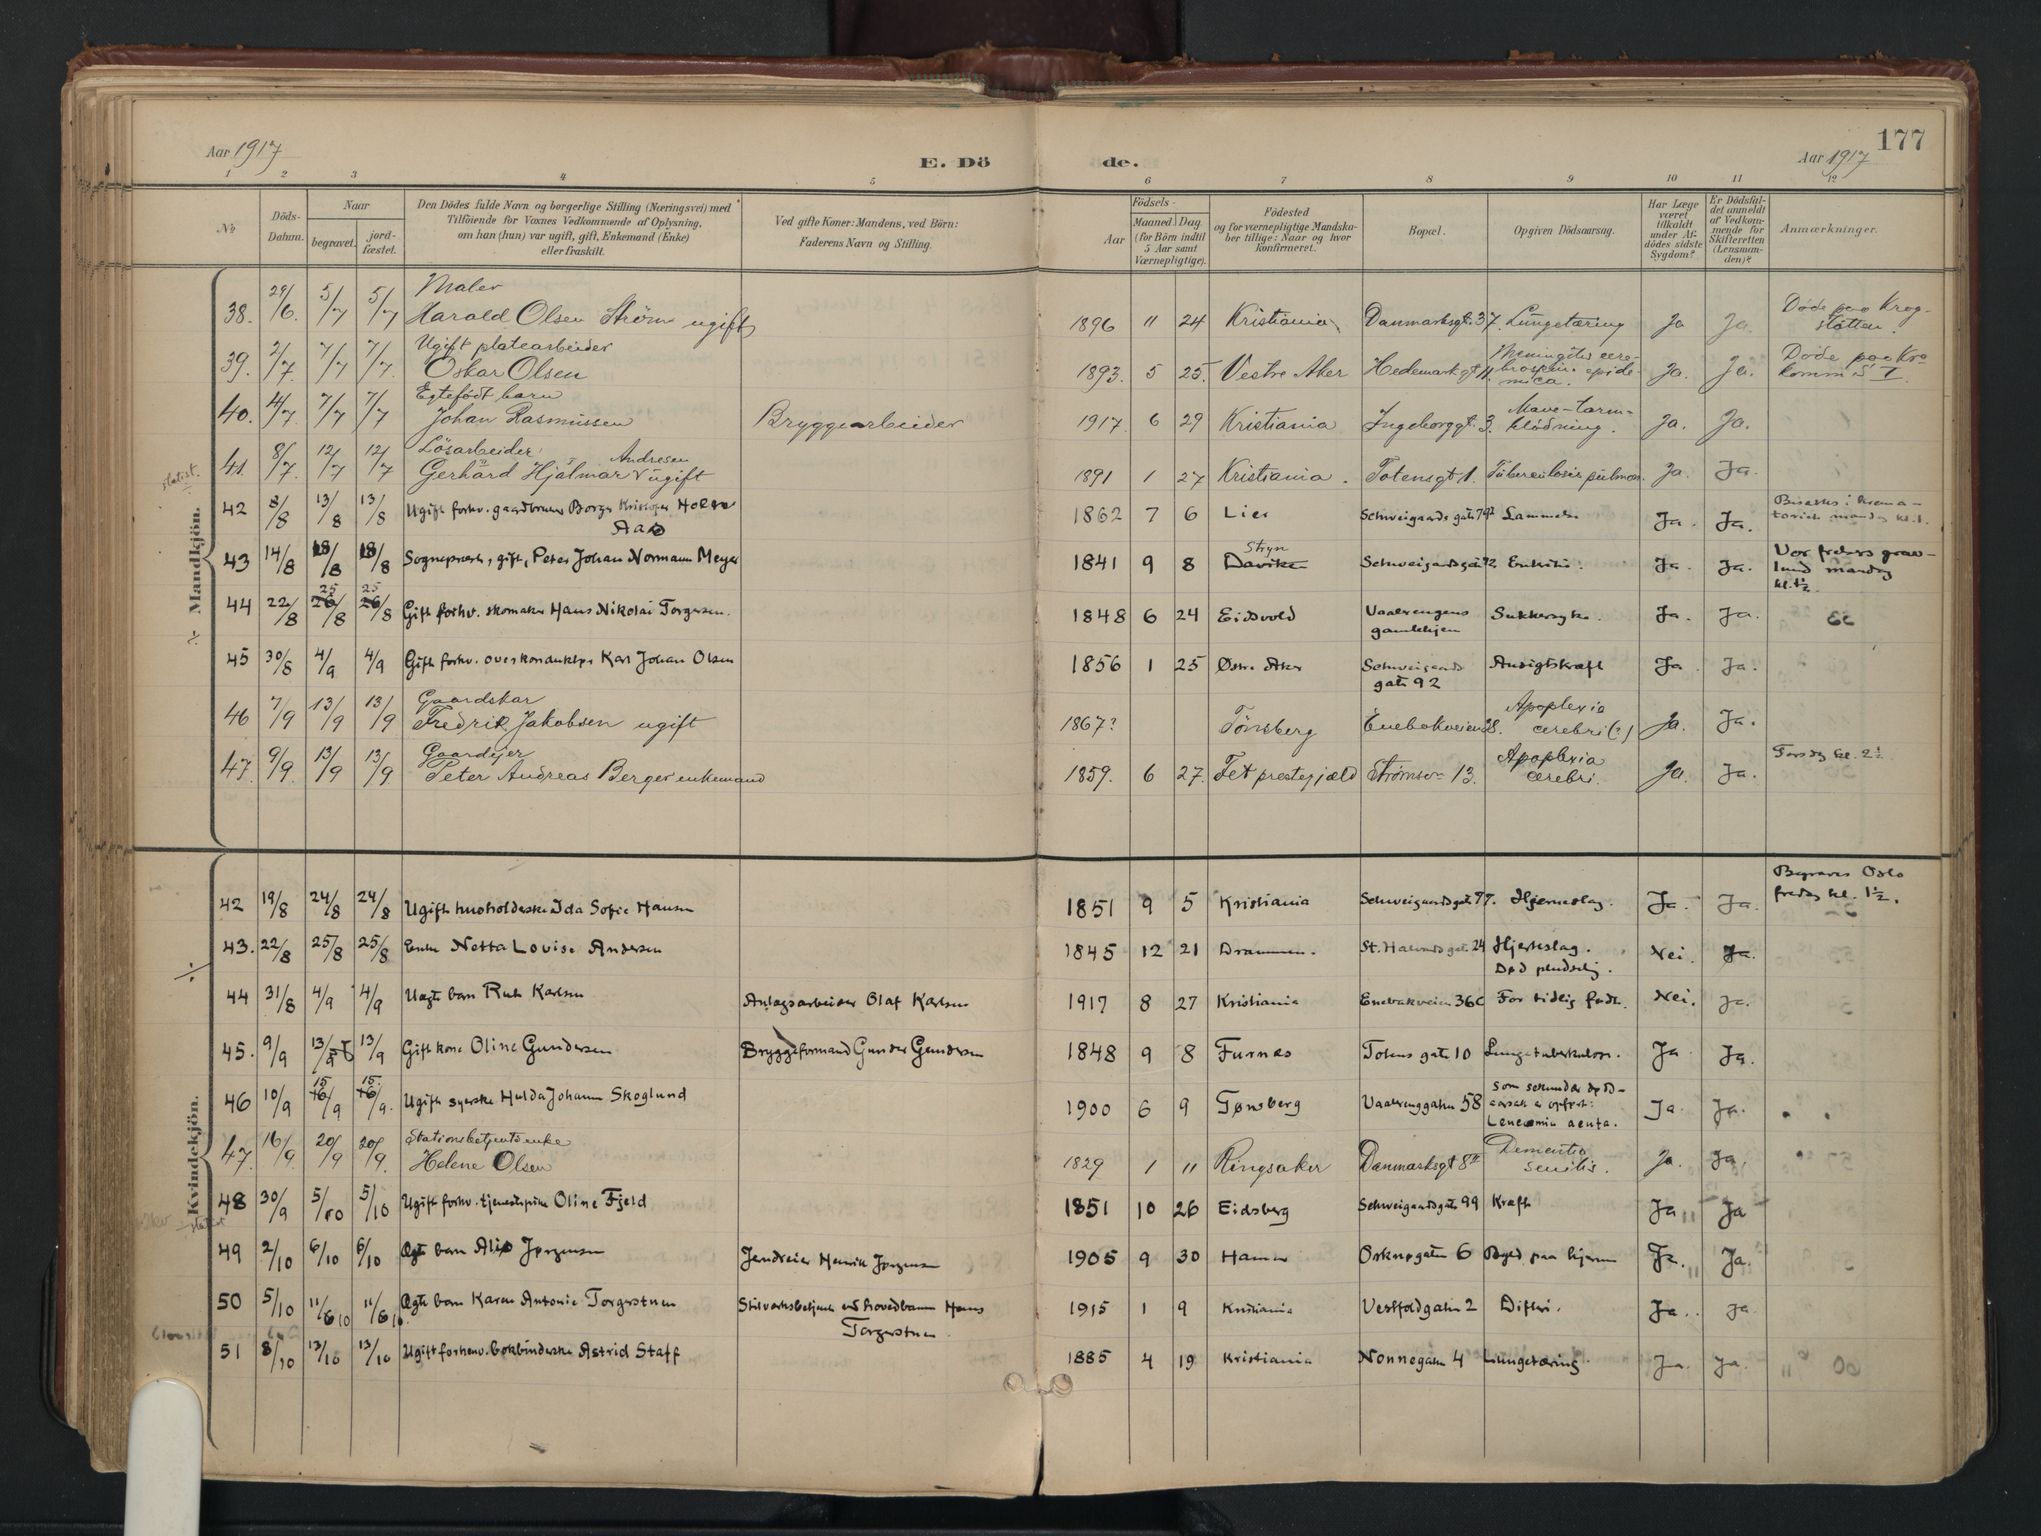 177
Aar 1917
E. Dö
de.
Aar 1917
1 2 3 4 5 6 7 8 9 10 11 12
No
Döds-
Datum.
Naar
begravet.
jord-
fæstet.
Den Dödes fulde Navn og borgerlige Stilling (Næringsvei) med
Tilföiende for Voxnes Vedkommende af Oplysning,
om han (hun) var ugift, gift, Enkemand (Enke)
eller fraskilt.
Ved gifte Koner: Mandens, ved Börn:
Faderens Navn og Stilling.
Födsels-
Aar
Maaned
Dag
(for Börn indtil
5 Aar samt
Værnepligtige).
Födested
og for værnepligtige Mandska-
ber tillige: Naar og hvor
konfirmeret.
Bopæl.
Opgiven Dödsaarsag.
Har Læge
været
tilkaldt
under Af-
dödes sidste
Sygdom?
Er Dödsfal-
det anmeldt
af Vedkom-
mende for
Skifteretten
(Lensman-
den)?
Anmærkninger.
÷ Mandkjön.
Maler
38. 29/6. 5/7 5/7 Harald Olsen Strøm ugift 1896 11 24 Kristiania Danmarksgt. 37. Lungetæring Ja Ja. Døde paa Krog-
støtten.
Ugift platearbeider
39. 2/7. 7/7 7/7. Oskar Olsen 1893. 5 25. Vestre Aker Hedemarkgt 11. Meningitis cere-
brospin. epide-
mica. Ja. Ja. Døde paa Kro
Egtefödt barn
40. 4/7. 7/7 7/7 Johan Rasmussen Bryggearbeider 1917. 6 29 Kristiania Ingeborggt. 3. Mave-tarm-
blödning. Ja. Ja.
statist.
Lösarbeider.
41. 8/7. 12/7 12/7 Gerhard Hjalmar Andresen v ugift 1891 1 27 Kristiania. Totensgt 1. Tuberculosis pulmon. Ja. Ja.
42 8/8 13/8 13/8 Ugift forhv. gaardbruker Borger Kristofer Holm
Aas 1862 7 6 Lier Schweigaards gate 79 Lammelse Ja. Ja. Bisættes i krema-
torict mandag kl. 1.
43 14/8 18/8 18/8 Sogneprest, gift, Peter Johan Normann Meyer 1841 9 8 Stryn
Daviken Schweigaardsgate 92 Ja. Ja. Vor frelsers grav-
lund mandag
kl. 1½
44 22/8 25 26/8 25 26/8 Gift forhv. skomaker Hans Nikolai Torgersen. 1848 6 24 Eidsvold Vaalerengens
gamlehjem Sukkersyke. Ja. Ja.
45 30/8 4/9 4/9 Gift forhv. overkonduktør Karl Johan Olsen 1856 1 25 Østre Aker Schweigaards
gate 92 Ansigtskræft Ja Ja.
Gaardskar
46 7/9 13/9 13/9 Fredrik Jakobsen ugift 1867? Tönsberg Enebakveien 28. Apoplexia
cerebri (?) Ja. Ja.
Gaardejer
47. 9/9. 13/9 13/9. Peter Andreas Berger enkemand 1859. 6 27. Fet prestegjæld Strømsv 13. Apoplexia
cerebri. Ja. Ja. Torsdag kl. 2½
÷ Kvindekjön.
42 19/8 24/8 24/8 Ugift husholderske Ida Sofie Hansen 1851 9 5 Kristiania Schweigaardsgate 77. Hjerneslag. Ja. Ja. Begraves Oslo
fredag kl. 1½.
43. 22/8 25/8 25/8 Enke Netta Lovise Andersen 1845 12 21 Drammen. St. Halvards gate 24 Hjerteslag.
Død pludselig. Nei. Ja.
44 31/8 4/9 4/9 Uegte barn Ruth Karlsen Anlægsarbeider Olaf Karlsen 1917 8 27 Kristiania Enebakveien 36c For tidlig født. Nei. Ja.
45. 9/9 13/9 13/9 Gift kone Oline Gundersen Bryggeformand Gunder Gundersen 1848 9 8 Furnes Totens gate 10 Lungetuberkulose. Ja Ja.
46 10/9 15 16/9 15. 16/9. Ugift syerske Hulda Johanne Skoglund 1900 6 9 Tønsberg Vaalerenggaten 58 Som sekundær død-
aarsak er opført:
Leucæmia acuta. Ja. Ja.
Stationsbetjentsenke
47. 16/9. 20/9 20/9. Helene Olsen 1829 1 11 Ringsaker Danmarksgt 8II Dementia
senilis. Ja. Ja.
statist
48 30/9 5/10 5/10 Ugift forhv. tjenestepike Oline Fjeld 1851 10 26 Eidsberg Schweigaardsgate 99 Kræft Ja Ja
49 2/10 6/10 6/10 Egte barn Jørgensen Henrik Jørgensen 1905 9 30 Hamar Orknøgaten 6 Byld paa hjernen Ja. Ja.
50 5/10 11/10 11/10. Egte barn Karen Antonie Torgerstuen ved hovedbanen Hans
Torgerstuen. 1915 1 9 Kristiania Vestfoldgaten 2 Difteri. Ja. Ja
51 8/10 13/10 13/10 Ugift forhenv. bokbinderske Astrid Staff 1885 4 19 Kristiania Nonnegaten 4 Lungetæring. Ja. Ja.